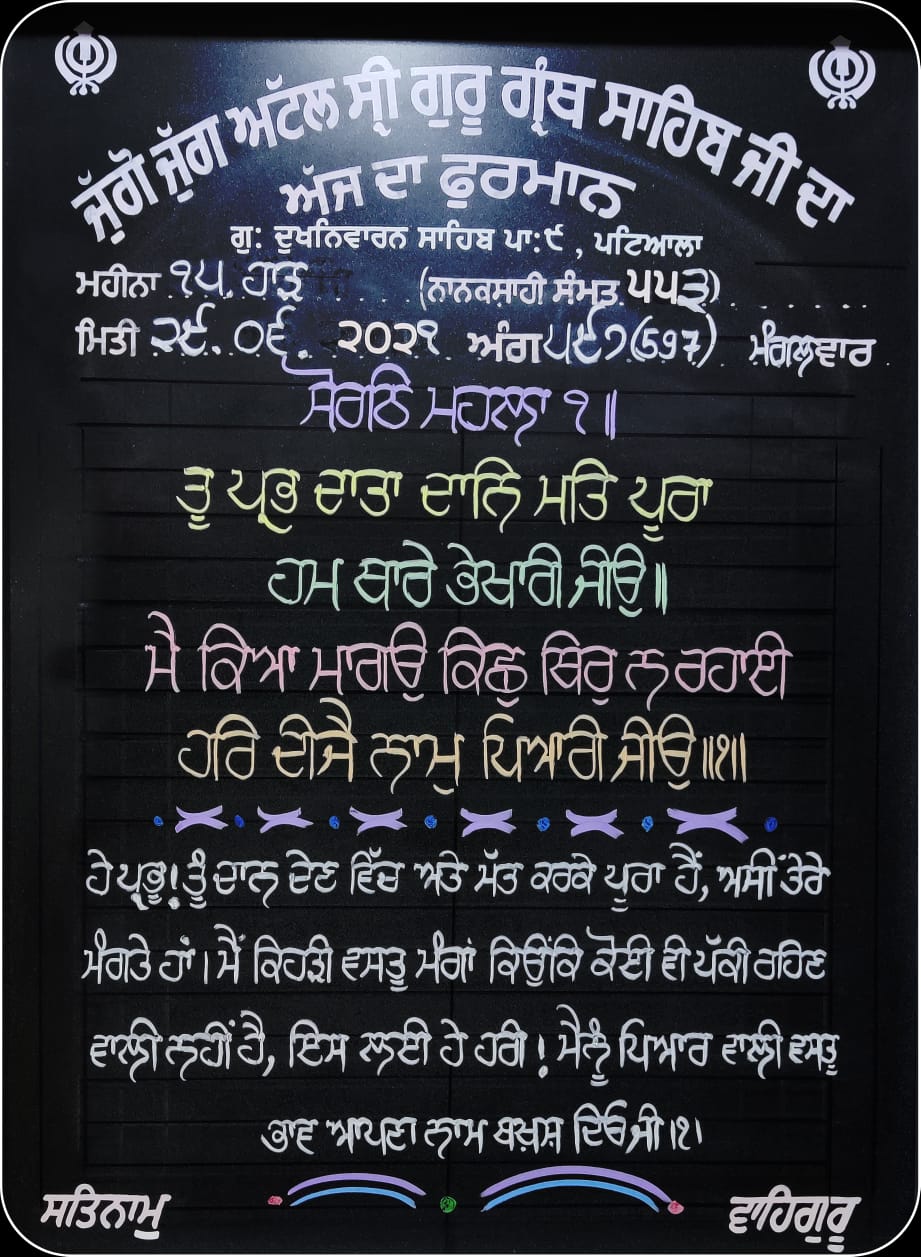 ਜੁੱਗੋ ਜੁੱਗ ਅਟੱਲ ਸ੍ਰੀ ਗੁਰੂ ਗ੍ਰੰਥ ਸਾਹਿਬ ਜੀ ਦਾ
ਅੱਜ ਦਾ ਫੁਰਮਾਨ
ਗੁ: ਦੁਖਨਿਵਾਰਨ ਸਾਹਿਬ ਪਾ:੯, ਪਟਿਆਲਾ
ਮਹੀਨਾ ੧੫. ਹਾੜ (ਨਾਨਕਸ਼ਾਹੀ ਸੰਮਤ ੫੫੩)
ਮਿਤੀ ੨੯. ੦੬. ੨੦੨੧ ਅੰਗ ੫੯੭ (597) ਮੰਗਲਵਾਰ
ਸੋਰਠਿ ਮਹਲਾ ੧॥
ਤੂ ਪ੍ਰਭ ਦਾਤਾ ਦਾਨਿ ਮਤਿ ਪੂਰਾ
ਹਮ ਥਾਰੇ ਭੇਖਾਰੀ ਜੀਉ॥
ਮੈ ਕਿਆ ਮਾਗਉ ਕਿਛੁ ਥਿਰੁ ਨ ਰਹਾਈ
ਹਰਿ ਦੀਜੈ ਨਾਮੁ ਪਿਆਰੀ ਜੀਉ॥੧॥
ਹੇ ਪ੍ਰਭੂ! ਤੂੰ ਦਾਨ ਦੇਣ ਵਿੱਚ ਅਤੇ ਮੱਤ ਕਰਕੇ ਪੂਰਾ ਹੈਂ, ਅਸੀਂ ਤੇਰੇ
ਮੰਗਤੇ ਹਾਂ। ਮੈਂ ਕਿਹੜੀ ਵਸਤੂ ਮੰਗਾਂ ਕਿਉਂਕਿ ਕੋਈ ਵੀ ਪੱਕੀ ਰਹਿਣ
ਵਾਲੀ ਨਹੀਂ ਹੈ, ਇਸ ਲਈ ਹੇ ਹਰੀ! ਮੈਨੂੰ ਪਿਆਰ ਵਾਲੀ ਵਸਤੂ
ਭਾਵ ਆਪਣਾ ਨਾਮ ਬਖ਼ਸ਼ ਦਿਓ ਜੀ।੧।
ਸਤਿਨਾਮੁ ਵਾਹਿਗੁਰੂ